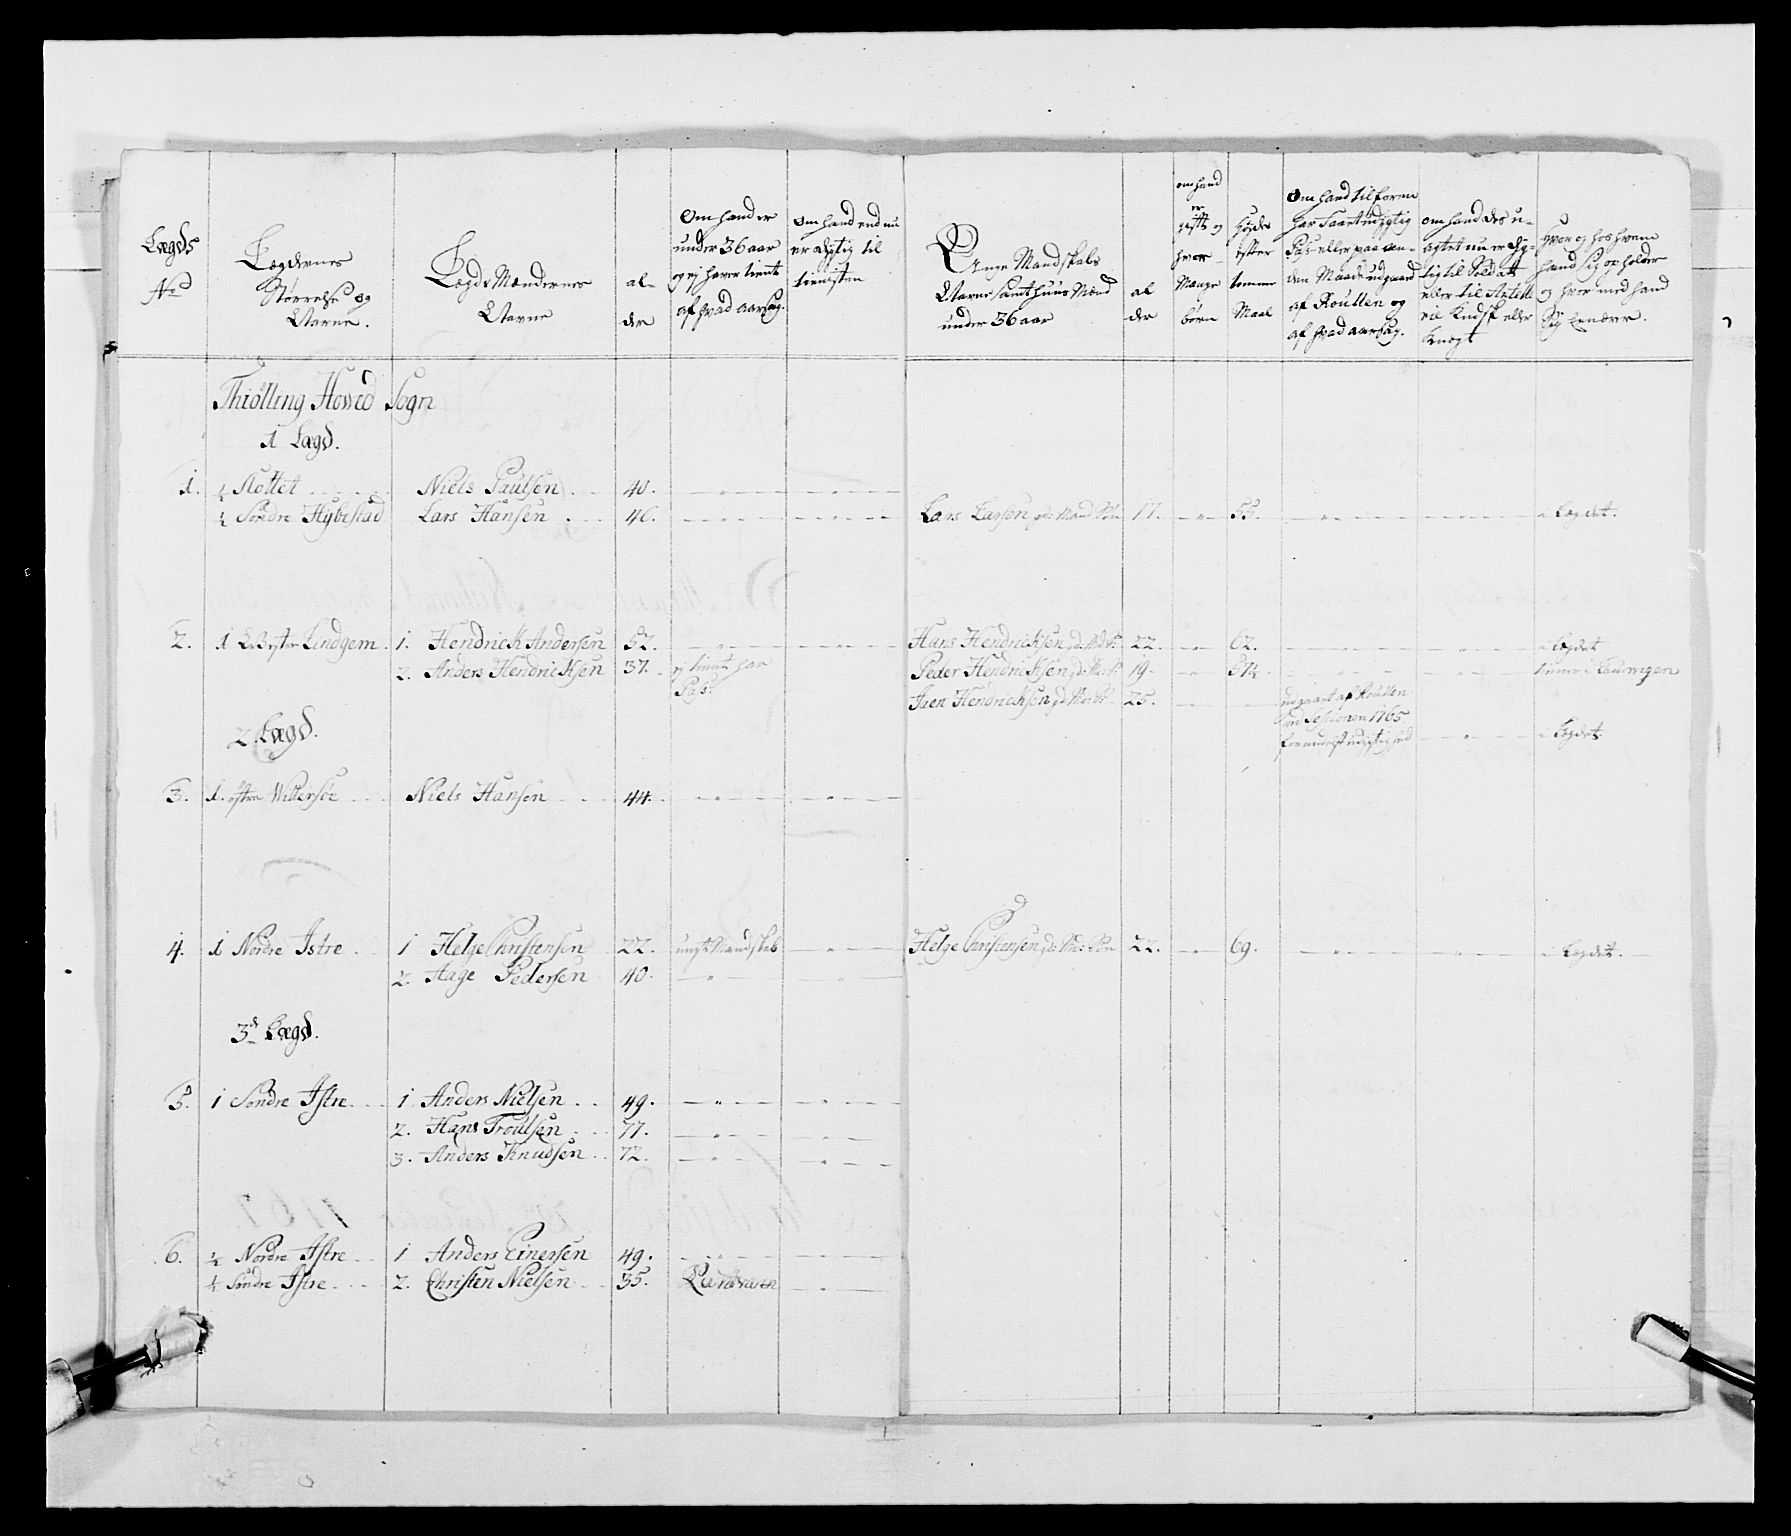 Lægds
No
Lægdernes
Størrelse og
Navne.
Lægds Mændernes
Navne
al-
der
Om hand er
under 36 aar
og ej haver tient
af hvad aarsag.
Om hand end nu
er dygtig til
tienisten
Unge Mandskabs
Navne samt huus Mænd
under 36 aar
al
der
om hand
er
gift og
hvor
Mange
børn
Høyde
efter
tomme
Maal
Om hand tilforne
har faaet udygtig
Pas eller paa an-
den Maade udgaaed
af Roullen og
af hvad aarsag.
om hand des u-
agtet nu er dyg-
tig til Soldatt
eller til
Kudsk eller
Knegt
hvor og hos hvem
hand sig opholder
og hvor med hand
Sig Ernærer.
Thiølling Howed Sogn
1 Lægd.
1. ½ Kottet Niels Paulsen 40.
½ Søndre Hybestad Lars Hansen 46. Lars Larsen gd: Mand Søn 17. 55. Lægdet.
2. 1 Vestre Lindgem 1. Hendrick Andersen 52. Hans Hendricksen 22. 62. Lægdet
2. Anders Hendricksen 37. ej tient har Peder Hendricksen 19. tiener i Laurvigen
Pas. Iven Hendricksen 25. udgaaet af Roullen
ved Sessionen 1765.
2 Lægd. formedelst udygtighed Lægdet
3. 1. østre Willersøe Niels Hansen 44.
4. 1 Nordre Istre 1 Helge Christensen 22. ungt Mandskab Helge Christensen gd: Md: Søn 22. 69. Lægdet.
2. Aage Pedersen 40.
3d Lægd.
5. 1 Søndre Istre 1 Anders Nielsen 49.
2. Hans Troulsen 77.
3. Anders Knudsen 72.
6. ½ Nordre Istre 1 Anders Einersen 49.
½ Søndre Istre 2. Christen Nielsen 35.